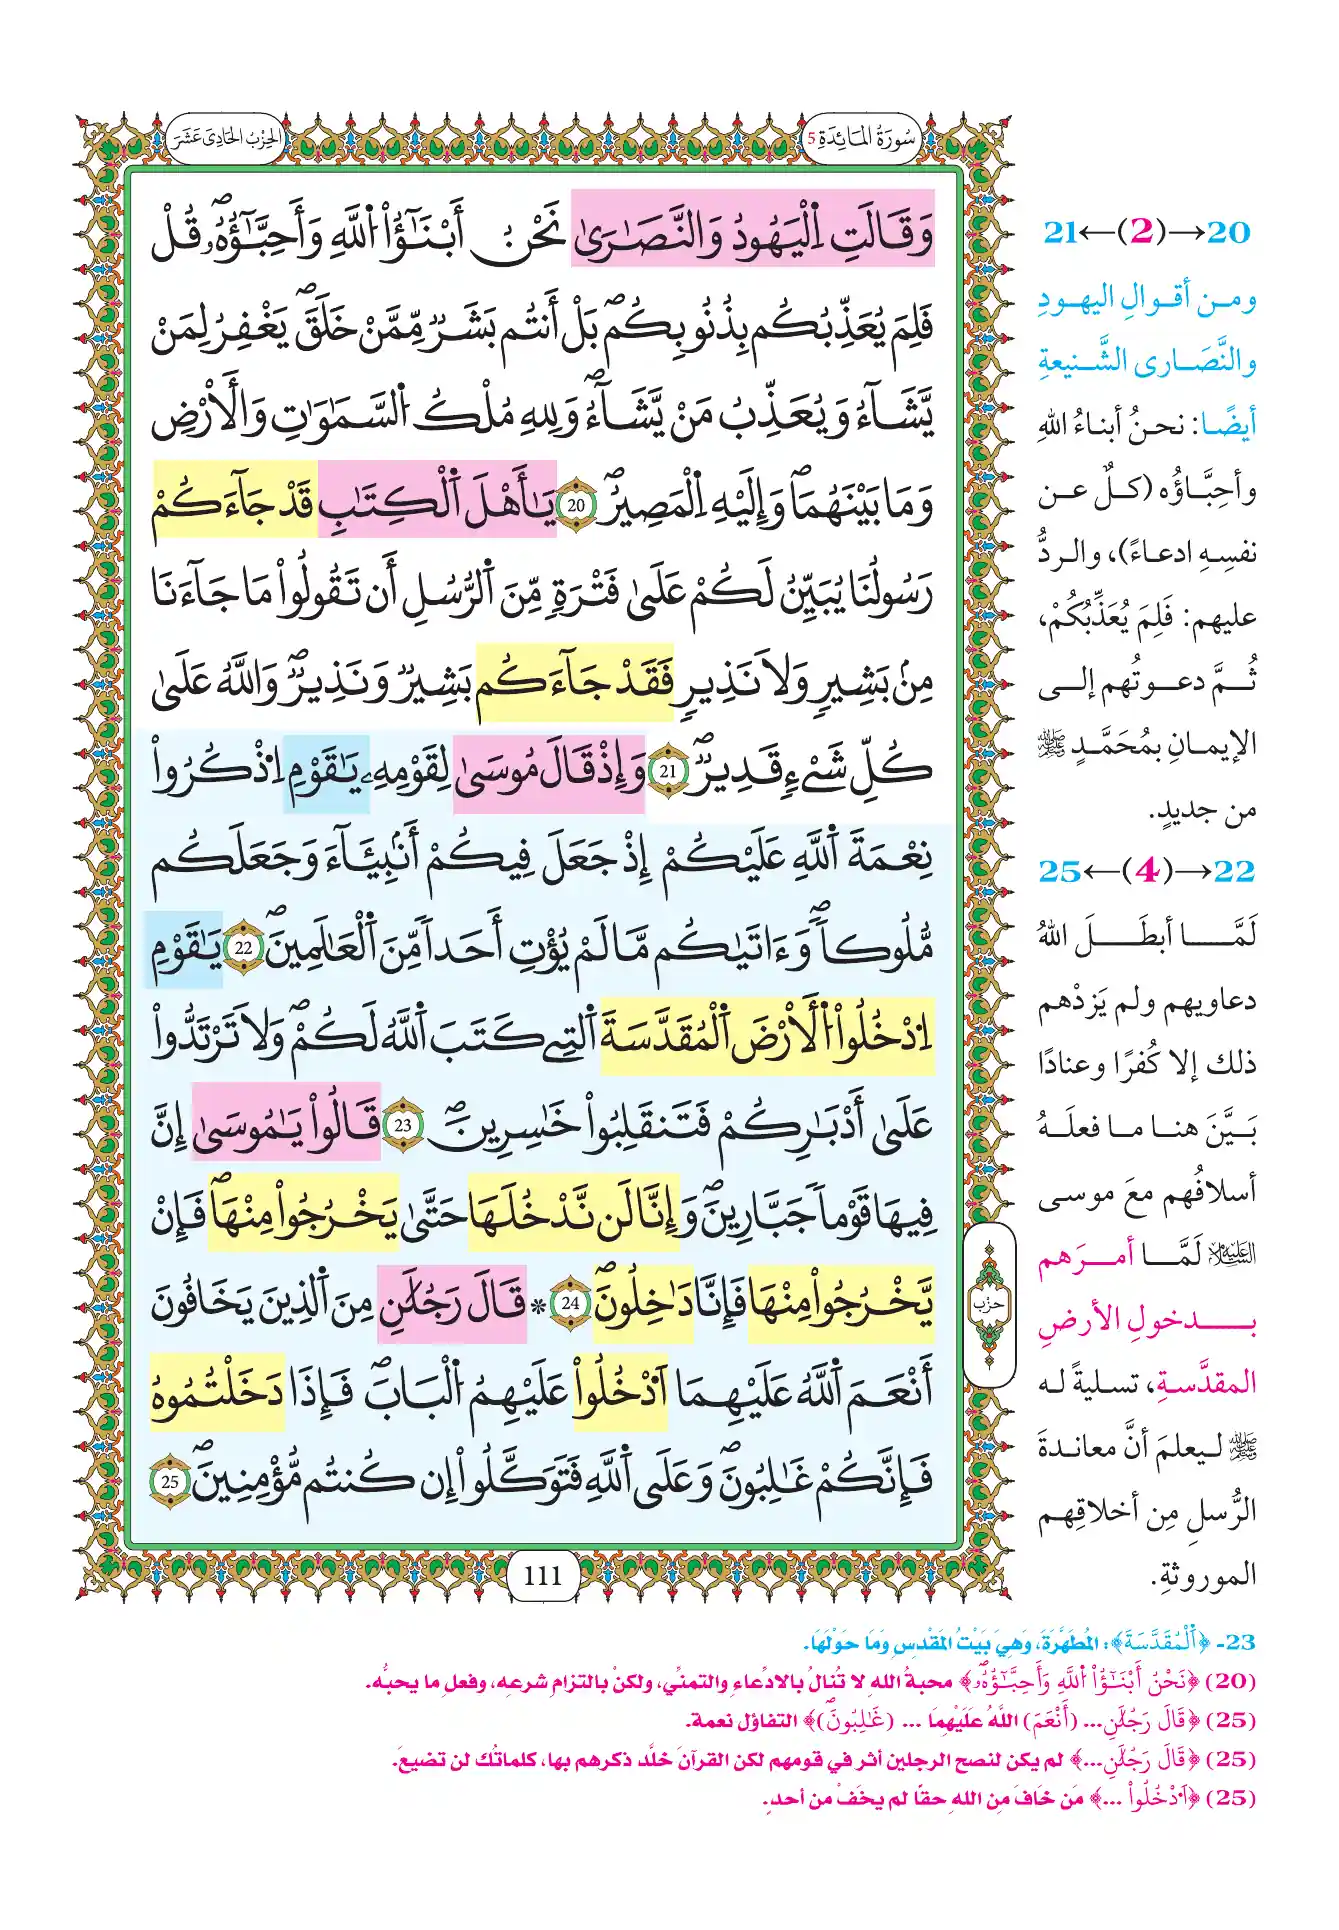 سُورَةُ المَائِدَةِ 5
الحِزْبُ الحَادِي عَشَرَ
وَقَالَتِ اِ۬لْيَهُودُ وَالنَّصَٰرَىٰ نَحْنُ أَبْنَٰٓؤُاْ اُ۬للَّهِ وَأَحِبَّٰٓؤُهُۥۖ قُلْ
فَلِمَ يُعَذِّبُكُم بِذُنُوبِكُمۖ بَلْ أَنتُم بَشَرٞ مِّمَّنْ خَلَقَۖ يَغْفِرُ لِمَنْ
يَّشَآءُ وَيُعَذِّبُ مَنْ يَّشَآءُۖ وَلِلهِ مُلْكُ اُ۬لسَّمَٰوَٰتِ وَالَارْضِ
وَمَا بَيْنَهُمَاۖ وَإِلَيْهِ اِ۬لْمَصِيرُۖ 20 يَٰأَهْلَ اَ۬لْكِتَٰبِ قَدْ جَآءَكُمْ
رَسُولُنَا يُبَيِّنُ لَكُمْ عَلَىٰ فَتْرَةٖ مِّنَ اَ۬لرُّسُلِ أَن تَقُولُواْ مَا جَآءَنَا
مِنۢ بَشِيرٖ وَلَا نَذِيرٖ فَقَدْ جَآءَكُم بَشِيرٞ وَنَذِيرٞۖ وَاللَّهُ عَلَىٰ
كُلِّ شَےْءٖ قَدِيرٞۖ 21 وَإِذْ قَالَ مُوسَىٰ لِقَوْمِهِۦ يَٰقَوْمِ اِ۟ذْكُرُواْ
نِعْمَةَ اَ۬للَّهِ عَلَيْكُمْ إِذْ جَعَلَ فِيكُمْ أَنۢبِيَٰٓءَ وَجَعَلَكُم
مُّلُوكاٗۖ وَءَاتَيٰكُم مَّا لَمْ يُؤْتِ أَحَداٗ مِّنَ اَ۬لْعَٰلَمِينَۖ 22 يَٰقَوْمِ
اِ۟دْخُلُواْ اُ۬لَارْضَ اَ۬لْمُقَدَّسَةَ اَ۬لتِے كَتَبَ اَ۬للَّهُ لَكُمْۖ وَلَا تَرْتَدُّواْ
عَلَىٰ أَدْبَٰرِكُمْ فَتَنقَلِبُواْ خَٰسِرِينَۖ 23 قَالُواْ يَٰمُوسَىٰ إِنَّ
فِيهَا قَوْماٗ جَبَّارِينَۖ وَإِنَّا لَن نَّدْخُلَهَا حَتَّىٰ يَخْرُجُواْ مِنْهَاۖ فَإِنْ
يَّخْرُجُواْ مِنْهَا فَإِنَّا دَٰخِلُونَۖ 24 * قَالَ رَجُلَٰنِ مِنَ اَ۬لذِينَ يَخَافُونَ
أَنْعَمَ اَ۬للَّهُ عَلَيْهِمَا اَ۟دْخُلُواْ عَلَيْهِمُ اُ۬لْبَابَۖ فَإِذَا دَخَلْتُمُوهُ
فَإِنَّكُمْ غَٰلِبُونَۖ وَعَلَى اَ۬للَّهِ فَتَوَكَّلُواْ إِن كُنتُم مُّؤْمِنِينَۖ 25
حزب
111
20→(2)←21
ومن أقوالِ اليهودِ
والنَّصَارى الشَّنيعةِ
أيضًا: نحنُ أبناءُ اللهِ
وأحِبَّاؤُه (كلٌ عن
نفسِهِ ادعاءً)، والردُّ
عليهم: فَلِمَ يُعَذِّبُكُمْ،
ثُمَّ دعوتُهم إلى
الإيمانِ بمُحَمَّدٍ ﷺ
من جديدٍ.
22→(4)←25
لَمَّا أبطَلَ اللهُ
دعاويهم ولم يَزدْهم
ذلك إلا كُفرًا وعنادًا
بَيَّنَ هنا ما فعلَهُ
أسلافُهم معَ موسى
عليه السلام لَمَّا أمرَهم
بدخولِ الأرضِ
المقدَّسةِ، تسليةً له
ﷺ ليعلمَ أنَّ معاندةَ
الرُّسلِ مِن أخلاقِهم
الموروثةِ.
23- ﴿اَ۬لْمُقَدَّسَةَ﴾: المُطَهَّرَةَ، وَهِيَ بَيْتُ المَقْدِسِ وَمَا حَوْلَهَا.
(20) ﴿نَحْنُ أَبْنَٰٓؤُاْ اُ۬للَّهِ وَأَحِبَّٰٓؤُهُۥۖ﴾ محبةُ اللهِ لا تُنالُ بالادِّعاءِ والتمنِّي، ولكنْ بالتزامِ شرعِهِ، وفعلِ ما يحبُّه.
(25) ﴿قَالَ رَجُلَٰنِ... (أَنْعَمَ) اللَّهُ عَلَيْهِمَا ... (غَٰلِبُونَۖ)﴾ التفاؤل نعمة.
(25) ﴿قَالَ رَجُلَٰنِ...﴾ لم يكن لنصح الرجلين أثر في قومهم لكن القرآنَ خلَّد ذكرهم بها، كلماتُك لن تضيعَ.
(25) ﴿اَ۟دْخُلُواْ ...﴾ مَن خَافَ مِن اللهِ حقًا لم يخَفْ من أحدٍ.